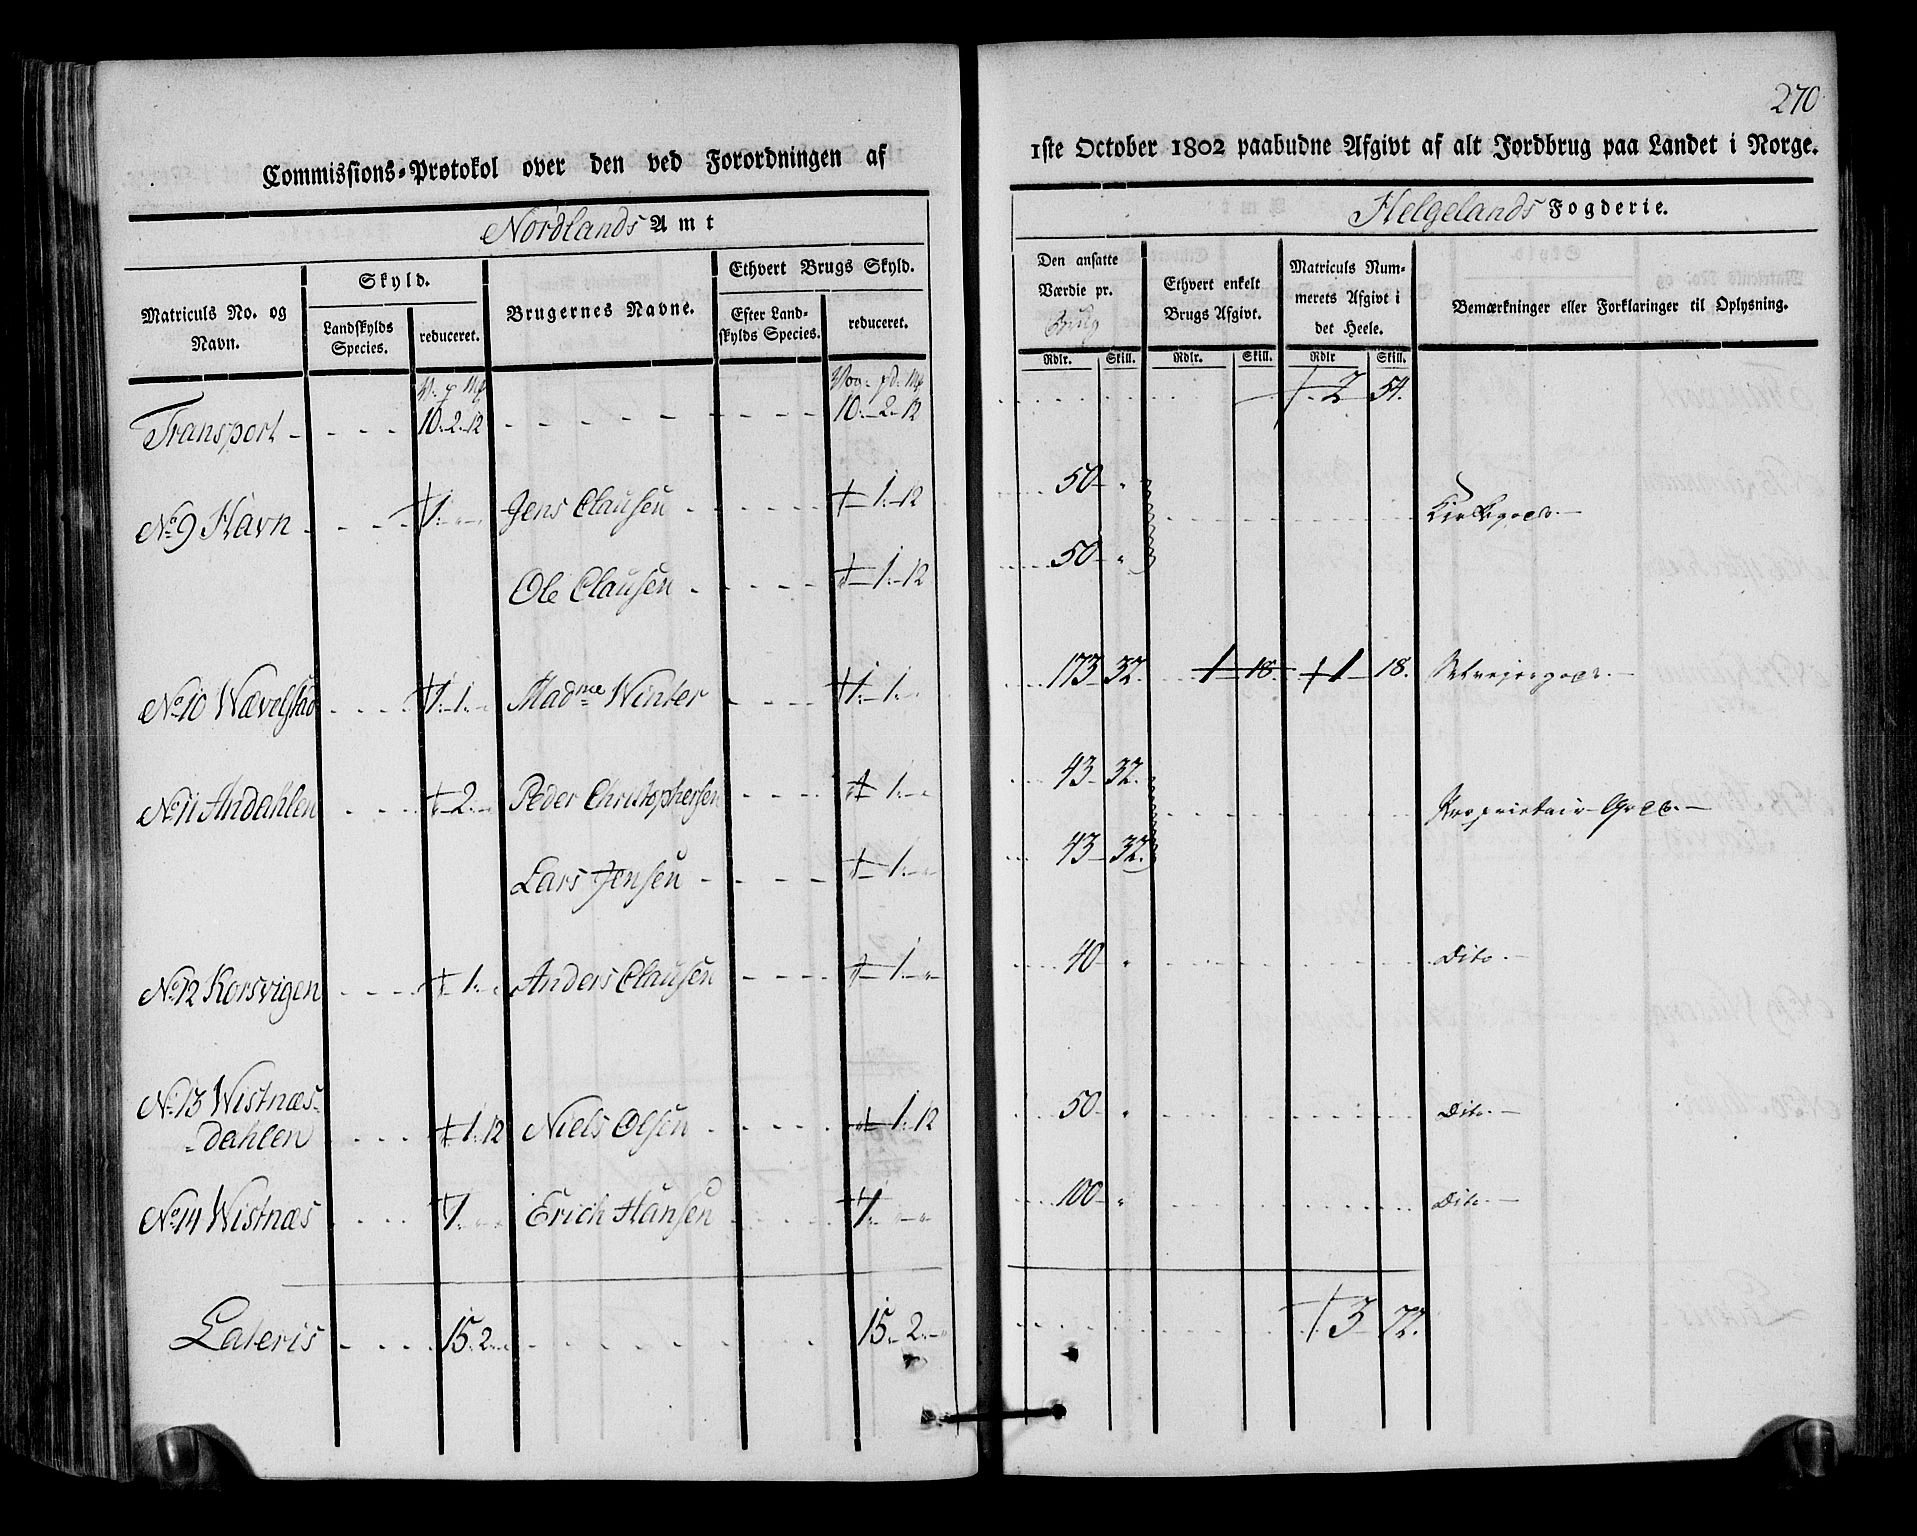 270
Commissions-Protokol over den ved Forordningen af 1ste October 1802 paabudne Afgivt af alt Jordbrug paa Landet i Norge.
Nordlands Amt
Helgelands Fogderie.
Matriculs No. og Navn.
Skyld.
Landskylds Species.
reduceret.
Brugernes Navne.
Ethvert Brugs Skyld.
Efter Landskylds Species.
reduceret.
Den ansatte Værdie pr. Brug
Ethvert enkelt Brugs Afgivt.
Matriculs Nummerets Afgivt i det Heele.
Bemærkninger eller Forklaringer til Oplysning.
Rdlr. Skill. Rdlr. Skill. Rdlr Skill.
Transport 10. 2. 12 10. 2. 12 2 54.
No 9 Havn 1. Jens Clausen 1. 12 50
Ole Clausen 1. 12 50
No 10 Wævelstad 1. 1. Madme Winter 1. 1. 173 32. 1 18. 1 18.
No 11 Andahlen 2. Peder Christophersen 1. 43 32. Proprietair Gods.
Lars Jensen 1. 43 32.
No 12 Korsvigen 1. Anders Clausen 1. 40 Dito.
No 13 Wistnæs-
dahlen 1. 12 Niels Olsen 1. 12 50 Dito.
No 14 Wistnæs 1. Erich Hansen 1. 100 Dito.
Lateris 15. 2. 15. 2. 3 72.